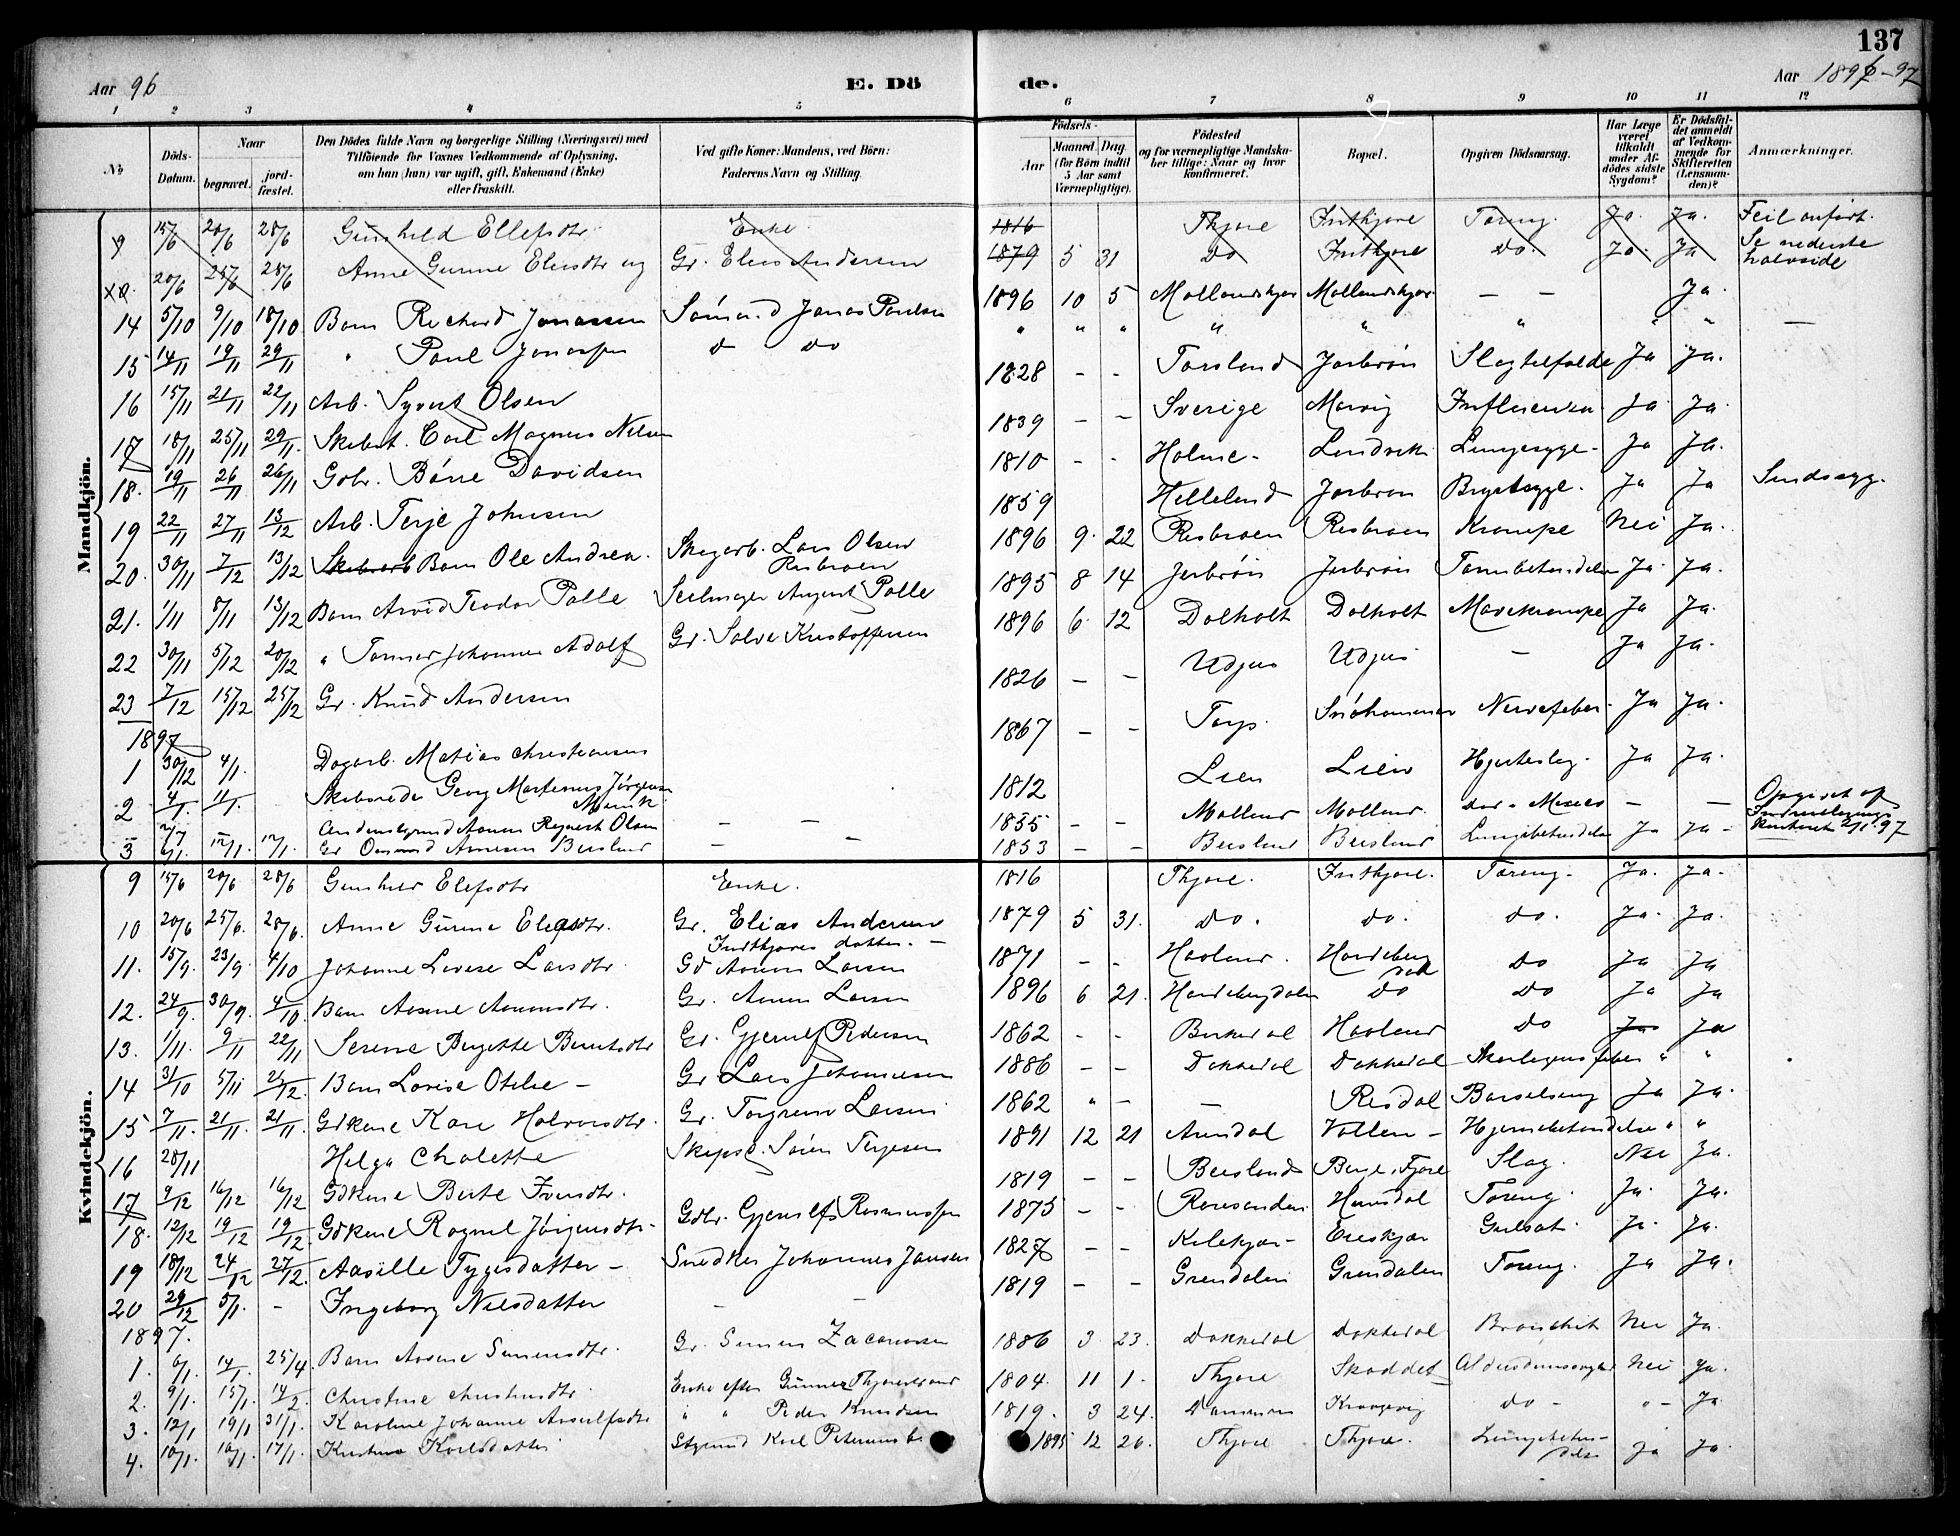 137
Aar 96
E. Dö
de.
Aar 1896-97
1 2 3 4 5 6 7 8 9 10 11 12
No
Döds-Datum.
Naar
begravet.
jordfæstet.
Den Dödes fulde Navn og borgerlige Stilling (Næringsvei) med
Tilföiende for Voxnes Vedkommende af Oplysning,
om han (hun) var ugift, gift, Enkemand (Enke)
eller fraskilt.
Ved gifte Koner: Mandens, ved Börn:
Faderens Navn og Stilling.
Födsels-
Aar
Maaned. Dag.
(for Börn indtil
5 Aar samt
Værnepligtige).
Födested
og for værnepligtige Mandska-
ber tillige: Naar og hvor
konfirmeret.
Bopæl.
Opgiven Dödsaarsag.
Har Læge været tilkaldt under Afdödes sidste Sygdom?
Er Dödsfaldet anmeldt af Vedkommende for Skifteretten (Lensmanden)?
Anmærkninger.
Mandkjön.
9 15/6 20/6 28/6 Gunhild Ellefsdtr. Enke. 1816 Thjore Inthjore Tæring. Ja. Ja. Feil anført.
20/6 25/6 28/6 Anne Gurine Eliasdtr ug Gr. Elias Andersen 1879 5 31 Do Inthjore Do. Ja. Ja Se nederste halvside
14 5/10 9/10 18/10 Barn Richard Jonassen Sømand Jonas Paulsen 1896 10 5 Mollandskjær Mollandskjær — — Ja.
15 14/11 19/11 29/11 " Paul Jonassen d do " " " " " " " " —
16 15/11 21/11 22/11 Arb. Syvert Olsen 1828 - - Torsland Jorbrøn Slagtilfælde Ja Ja.
17 18/11 25/11 29/11 Skibst. Carl Magnus Nilsen 1839 - - Sverige Morvig Influenza Ja. Ja.
18. 19/11 26/11 26/11 Gbr. Børre Davidsen 1810 - - Holme - Landvik Lungesyge - Ja Ja.
19 22/11 27/11 13/12 Arb. Terje Johnsen 1859 Helleland Jorbron Brystsyge. Ja Ja Sindssyg.
20. 30/11 7/12 13/12 Barn Ole Andrea. Skogarb. Lars Olsen Resbroen 1896 9. 22 Resbroen Resbroen Krampe Nei Ja.
21. 1/11 8/11 13/12 Barn Arvid Teodor Palle August Palle 1895 8 14 Jorbrøn Jorbrøn Ja. Ja.
22 30/11 5/12 20/12 " Johannes Adolf Gr. Salve Kristoffersen 1896 6. 12 Dolholt Dolholt Mavekrampe Ja Ja.
23 7/12 15/12 25/12 Gr. Knud Andersen 1826 - - Udjus Udjus - Ja Ja.
1897
1 30/12 4/1. Dagarb. Matias Christiansen 1867 - - Torp. Nervefeber. Ja Ja.
2 4/1. 11/1. Skibsreder Georg Martinus Jørgensen 1812 Lien Lien Hjerteslag. Ja Ja.
Reinert Olsen - - 1855 - - Molland Molland. - - 2/1 97
3 12/1. 17/1. Gr. Beisland - - 1853 - - Beisland Beisland Lungebetændelse Ja Ja -
Kvindekjön.
9 15/6 20/6 28/6 Gunhild Elefsdtr Enke. 1816 Thjore. Inthjore. Tæring. Ja. Ja.
10 20/6 25/6. 28/6. Anne Gurine Eliasdtr. Gr. Elias Andersen Inthjores datter. - 1879 5 31. do. do. do. Ja. Ja.
11. 15/9. 23/9. 4/10 Johanne Lovise Larsdtr. Larsen 1871 - - Haaland. do Ja Ja
12. 24/9. 30/9. 4/10 Barn Aasine Gr. Larsen 1896 6 21. do do Ja Ja
13. 1/11. 9/11 22/11 Serine Birgitte Berntsdtr Gr. Gjerulf Pedersen 1862 - - Birkedal Haaland do Ja Ja
14 31/10 5/11 21/12. Barn Lovise Otilie - Gr. Lars Johannesen 1886 - - Dakkedal Dakkedal Skarlagensfeber " "
15 7/11. 21/11. 21/11. Gdkone Kare Halvorsdtr. Gr. Torgrim Larsen 1862 " - - Resdal Barselseng Ja Ja.
16 28/11 Helga Charlotte Søren Terjesen 1891 12 21 Arendal Vollen - Hjernebetændelse " "
17 9/12 16/12 16/12 Gdkone Berte 1819 - - Beisland Berge. Fjære Slag. Nei Ja.
18. 12/12 19/12 19/12. Gdkone Ragnil Jörgensdtr - Gdbr. Gjerulf Rasmussen 1875 - - Roresanden Hamsdal Tæring. Ja. Ja.
19 18/12 24/12 27/12. Aasille Tygesdatter - Snedker Johannes Jansen 1827 - - Kilekjær - Eieskjær Gulsot. Ja. Ja.
20 29/12 5/1. - Ingeborg Nilsdatter - - 1819 - - Grendalen Grendalen Tæring. Ja Ja.
1897.
1. 6/1. 14/1. 25/4. Barn Aasine Simensdtr. Gr. Simen Zacariasen 1886 3 23. Dakkedal Dakkedal Bronchit Nei Ja.
2. 9/1. 15/1. 14/2. Christine Enke efter Gunner 1804. 11 1. Thjore Skaddet Alderdomssvaghed Nei Ja.
3. 12/1 19/1 31/1. Karoline Johanne " " Peder Knudsen 1819. 3 24. do - " - Ja
4. 10/1. 16/1. 17/1. Karlsdatter Styrmd Karl 1895 12 26. Thjore Thjore. Lungebetændelse Ja Ja.